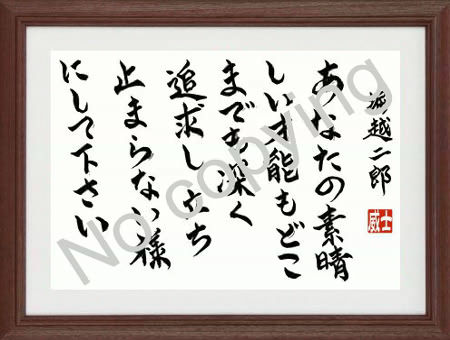 堀越二郎
威士
あなたの素晴
しい才能もどこ
までも深く
追求し立ち
止まらない様
にして下さい
No copying